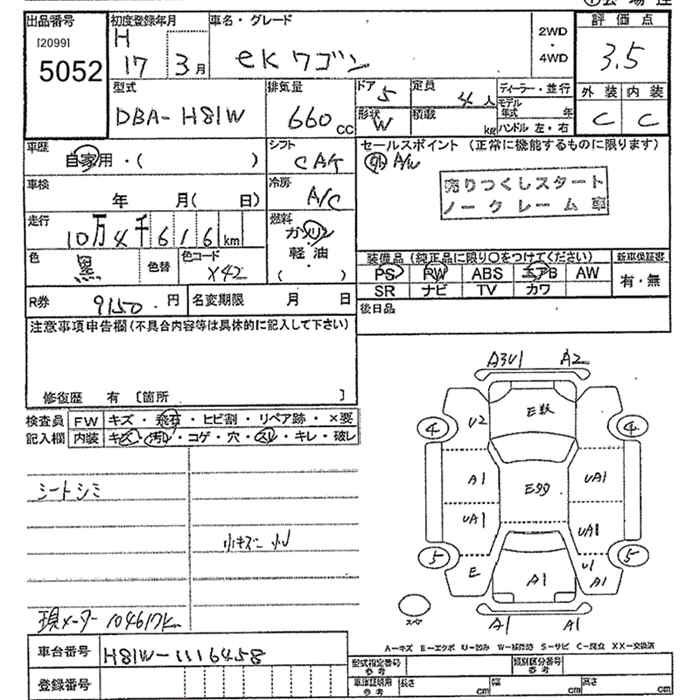 出品番号 初度登録年月 車名・グレード 評価点
[2099]
5052
H
17 3月
eKワゴン
2WD
・
4WD
3.5
型式 排気量 ドア 定員 ディーラー・並行 外装 内装
DBA-H81W 660cc 5 4人
モデル年式 年
形状 W 積載 kg ハンドル 左・右
C C
車歴 シフト セールスポイント (正常に機能するものに限ります)
自家用・( ) CAT 外A/W
車検 冷房
年 月( 日) A/C
売りつくしスタート
ノークレーム車
走行 燃料
10万4千616km ガソリン
軽油
( )
色 色替 色コード
黒 X42
装備品 (純正品に限り○をつけてください) 新車保証書
PS PW ABS エアB AW 有・無
SR ナビ TV カワ
R券 9150円 名変期限 月 日 後日品
注意事項申告欄(不具合内容等は具体的に記入して下さい)
修復歴 有 [箇所 ]
検査員 FW キズ・飛石・ヒビ割・リペア跡・×要
記入欄 内装 キズ・汚れ・コゲ・穴・スレ・キレ・破レ
シートシミ
小キズ 小U
現メーター 104617K
A3U1 A2
E数
4 U2 4
A1 E多数 UA1
UA1 UA1
5 E A1 U1 A1 5
スペア A1 A1
A-キズ E-エクボ U-凹み W-補修跡 S-サビ C-腐食 XX-交換済
車台番号 H81W-1116458
型式指定番号 参考 類別区分番号 参考
登録番号 車庫証明用 参考 長さ cm 幅 cm 高さ cm